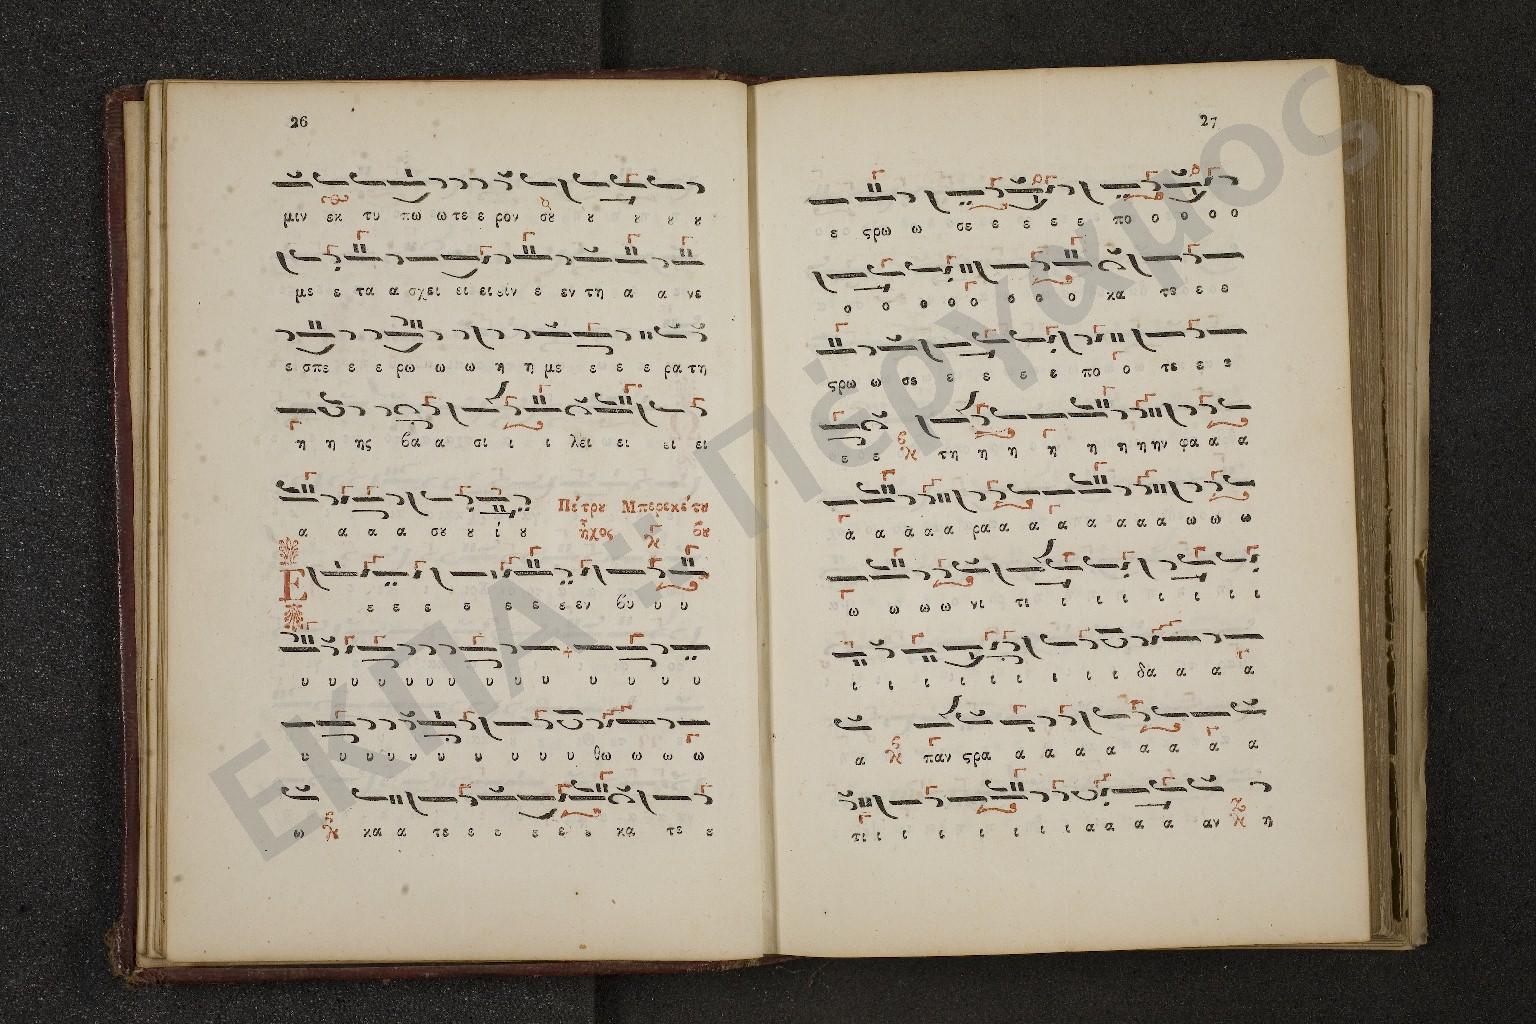 26
μιν εκ τυ πω ω τε ε ρον σȣ ȣ ȣ ȣ ȣ
με ε τα α σχει ει ει ειν ε εν τη α α νε
ε σπε ε ε ρω ω ω η η με ε ε ε ρα τη
η η ης βα α σι ι ι λει ει ει ει
α α α α σȣ ȣ ί ȣ Πέτρȣ Μπερεκέτȣ ἦχος
Ε ε ε ε ε ε ε ε εν βυ υ υ
υ υ υ υ υ υ υ υ υ υ υ υ υ υ υ
υ υ υ υ υ υ υ υ υ υ υ υ θω ω ω ω
ω κα α τε ε ε ε ε ε κα τε ε
27
ε ϛρω ω σε ε ε ε ε πο ο ο ο ο
ο ο ο ο ο ο ο ο κα τε ε ε
ϛρω ω σε ε ε ε ε πο ο τε ε ε
ε ε τη η η η η η η ην φα α α
ὰ α ὰ α α ρα α α α α α α α ω ω ω
ω ω ω ω νι τι ι ι ι ι ι ι ι
ι ι ι ι ι ι ι ι ι δα α α α
α παν ϛρα α α α α α α α α
τι ι ι ι ι ι ι ι α α α α αν η
ΕΚΠΑ :: Πέργαμος